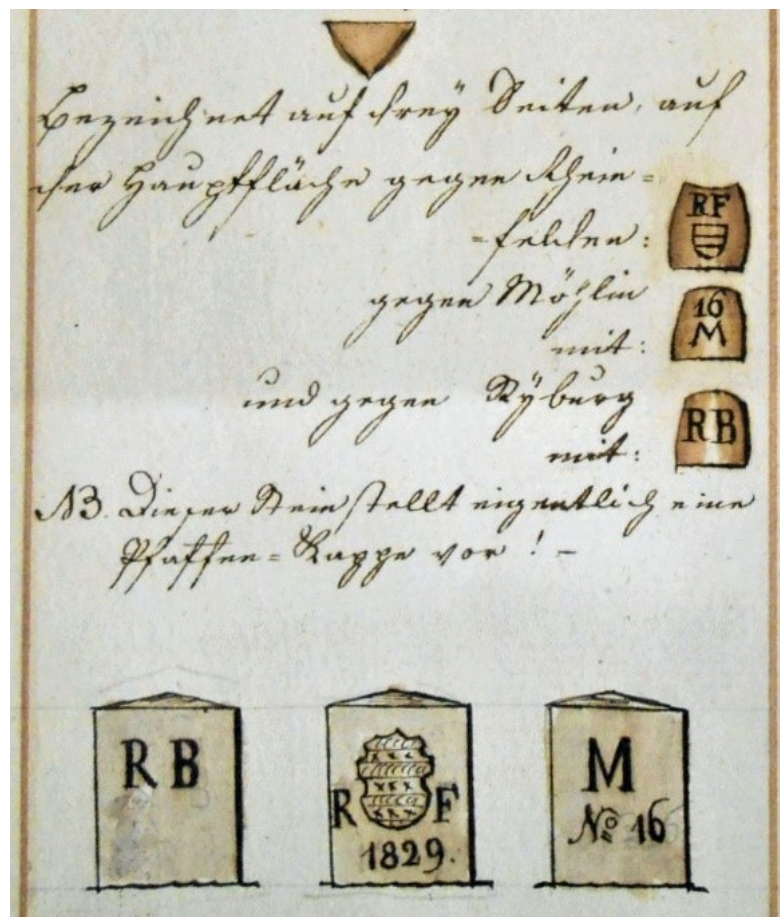 Bezeichnet auf drey Seiten, auf
der Hauptfläche gegen Rhein=
=felden:
RF
gegen Möhlin
mit:
16
M
und gegen Rÿburg
mit:
RB
NB. Dieser Stein stellt eigentlich eine
Pfaffen=Kappe vor! –
R B
R F
1829.
M
No 16